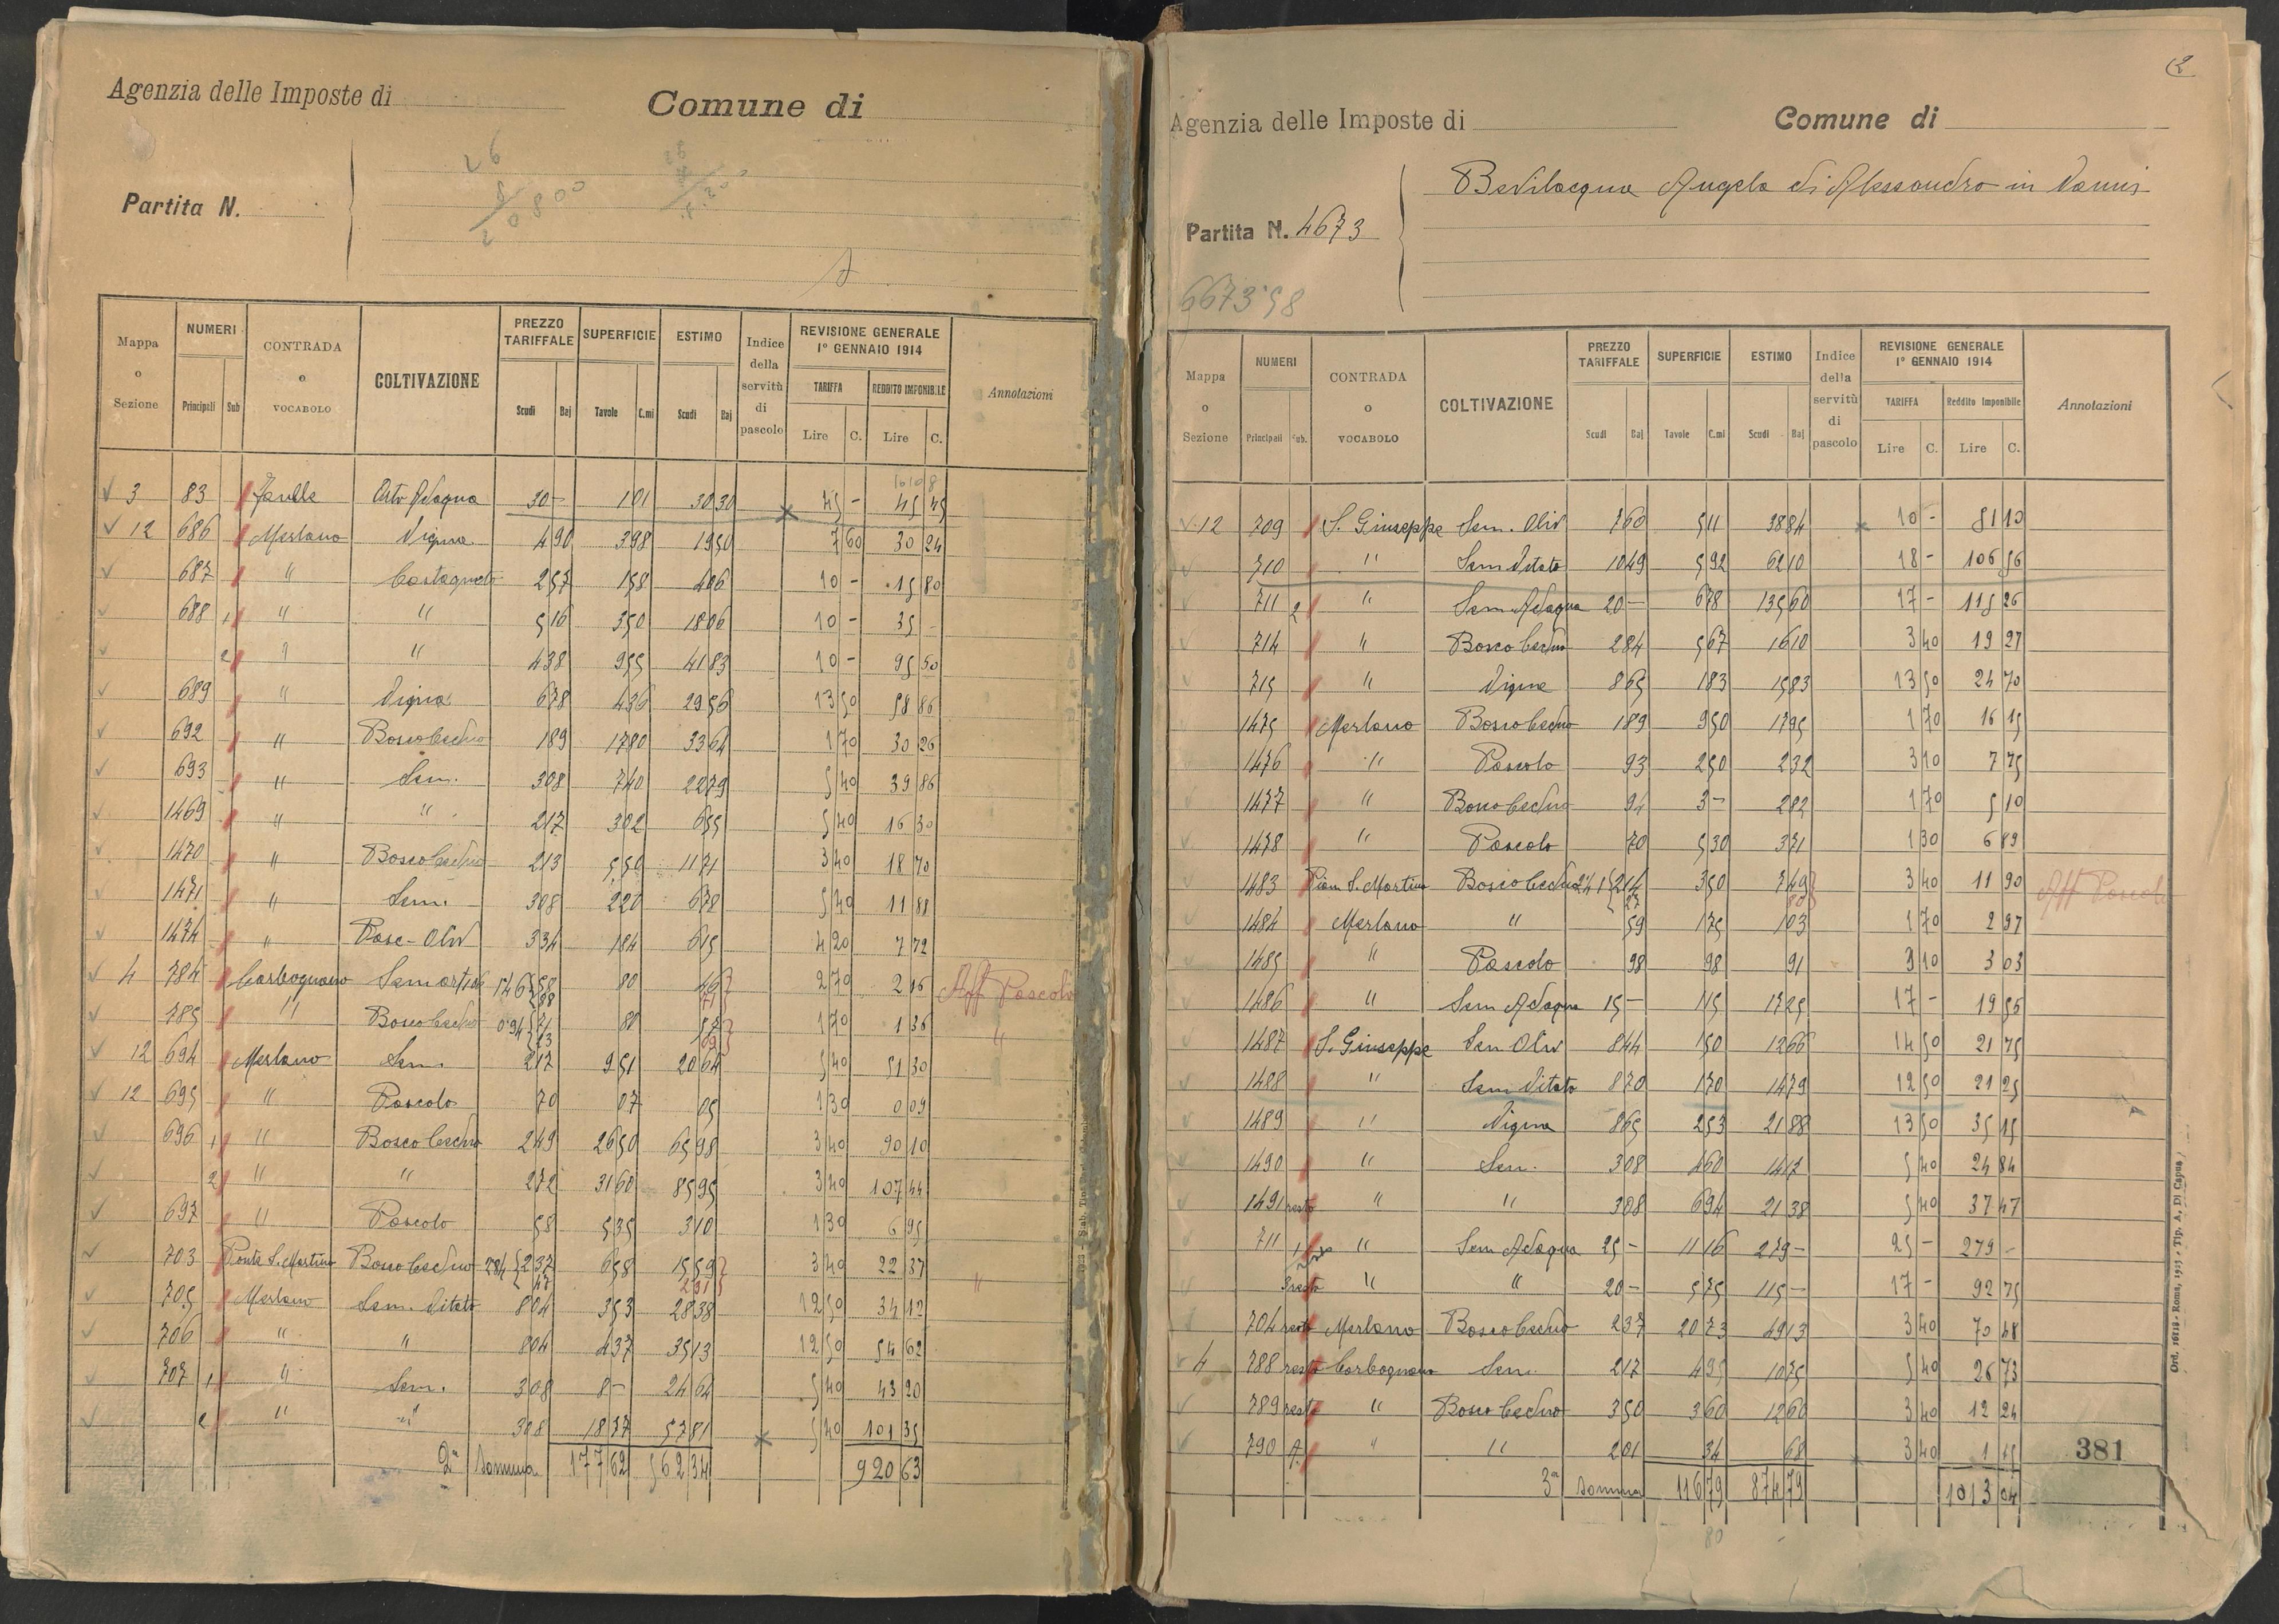 Agenzia delle Imposte di
Comune di
Partita N.
Mappa o Sezione | NUMERI Principali Sub | CONTRADA o VOCABOLO | COLTIVAZIONE | PREZZO TARIFFALE Scudi Baj | SUPERFICIE Tavole C.mi | ESTIMO Scudi Baj | Indice della servitù di pascolo | REVISIONE GENERALE 1° GENNAIO 1914 TARIFFA Lire C. REDDITO IMPONIBILE Lire C. | Annotazioni
3 83 Orto Adaqua 30 — 1 01 30 30 45 — 45 45
12 686 Merlano Vigna 4 90 3 98 19 50 7 60 30 24
687 " Castagneto 2 57 1 58 4 06 10 — 15 80
688 1 " " 5 16 3 50 18 06 10 — 35 —
2 " " 4 38 9 55 41 83 10 — 95 50
689 " Vigna 6 78 4 36 29 56 13 50 58 86
692 " Bosco Ceduo 1 89 17 80 33 64 1 70 30 26
693 " Sem. 3 08 7 40 22 79 5 40 39 86
1469 " " 2 17 3 02 6 55 5 40 16 30
1470 " Bosco Ceduo 2 13 5 50 11 71 3 40 18 70
1471 " Sem. 3 08 2 20 6 78 5 40 11 88
1474 " Pasc - Oliv 3 34 1 84 6 15 4 20 7 72
4 784 Carbognano 80 2 70 2 16 Aff Pascolo
785 " Bosco Ceduo 0.94 80 1 70 1 36 "
12 694 Merlano Sem. 2 17 9 51 20 64 5 40 51 30
12 695 " Pascolo 70 07 05 1 30 0 09
696 1 " Bosco Ceduo 2 49 26 50 65 98 3 40 90 10
2 " " 2 72 31 60 85 95 3 40 107 44
697 " Pascolo 58 5 35 3 10 1 30 6 95
703 Ponte S. Martino Bosco Ceduo 284 2 37 47 6 58 15 59 3 40 22 37 "
705 Merlano Sem. Vitato 8 04 3 53 28 38 12 50 34 12
706 " " 8 04 4 37 35 13 12 50 54 62
707 1 " Sem. 3 08 8 — 24 64 5 40 43 20
2 " " 3 08 18 77 57 81 5 40 101 35
2ª Somma 177 62 562 34 920 63
12
Agenzia delle Imposte di
Comune di
Bevilacqua Angela di Alessandro in Vannis
Partita N. 4673
6673.58
Mappa o Sezione | NUMERI Principali Sub. | CONTRADA o VOCABOLO | COLTIVAZIONE | PREZZO TARIFFALE Scudi Baj | SUPERFICIE Tavole C.mi | ESTIMO Scudi Baj | Indice della servitù di pascolo | REVISIONE GENERALE 1° GENNAIO 1914 TARIFFA Lire C. Reddito Imponibile Lire C. | Annotazioni
12 709 S. Giuseppe Sem. Oliv 7 60 5 11 38 84 10 — 51 10
710 " Sem Vitato 10 49 5 92 62 10 18 — 106 56
711 2 " Sem Adaqua 20 — 6 78 135 60 17 — 115 26
714 " Bosco Ceduo 2 84 5 67 16 10 3 40 19 27
715 " Vigna 8 65 1 83 15 83 13 50 24 70
1475 Merlano Bosco Ceduo 1 89 9 50 17 95 1 70 16 15
1476 " Pascolo 93 2 50 2 32 3 10 7 75
1477 " Bosco Ceduo 94 3 — 2 82 1 70 5 10
1478 " Pascolo 70 5 30 3 71 1 30 6 89
1483 Piam S. Martino Bosco Ceduo 241 2 14 27 3 50 7 49 3 40 11 90 Aff Pascolo
1484 Merlano " 59 1 75 1 03 1 70 2 97
1485 " Pascolo 98 98 91 3 10 3 03
1486 " Sem Adaqua 15 — 1 15 17 25 17 — 19 56
1487 S. Giuseppe Sem Oliv 8 44 1 50 12 66 14 50 21 75
1488 " Sem Vitato 8 70 1 70 14 79 12 50 21 25
1489 " Vigna 8 65 2 53 21 88 13 50 35 15
1490 " Sem. 3 08 4 60 14 17 5 40 24 84
1491 resto " " 3 08 6 94 21 38 5 40 37 47
711 1 " Sem Adaqua 25 — 11 16 279 — 25 — 279 —
3 resto " " 20 — 5 75 115 — 17 — 92 75
704 resto Merlano Bosco Ceduo 2 37 20 73 49 13 3 40 70 48
4 788 resto Carbognano Sem. 2 17 4 95 10 75 5 40 26 73
789 resto " Bosco Ceduo 3 50 3 60 12 60 3 40 12 24
790 A. " " 2 01 34 68 3 40 1 15
3ª Somma 116 79 874 79 1013 04
381
80
Ord. 16118 - Roma, 1913 - Tip. A. Di Capua